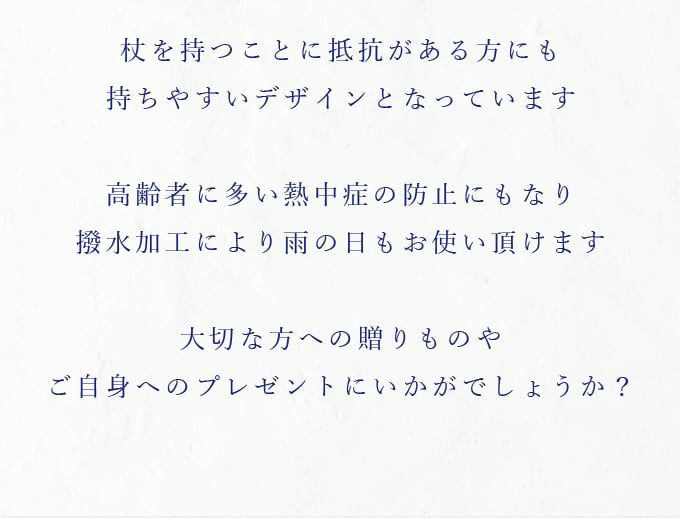 杖を持つことに抵抗がある方にも
持ちやすいデザインとなっています
高齢者に多い熱中症の防止にもなり
撥水加工により雨の日もお使い頂けます
大切な方への贈りものや
ご自身へのプレゼントにいかがでしょうか？